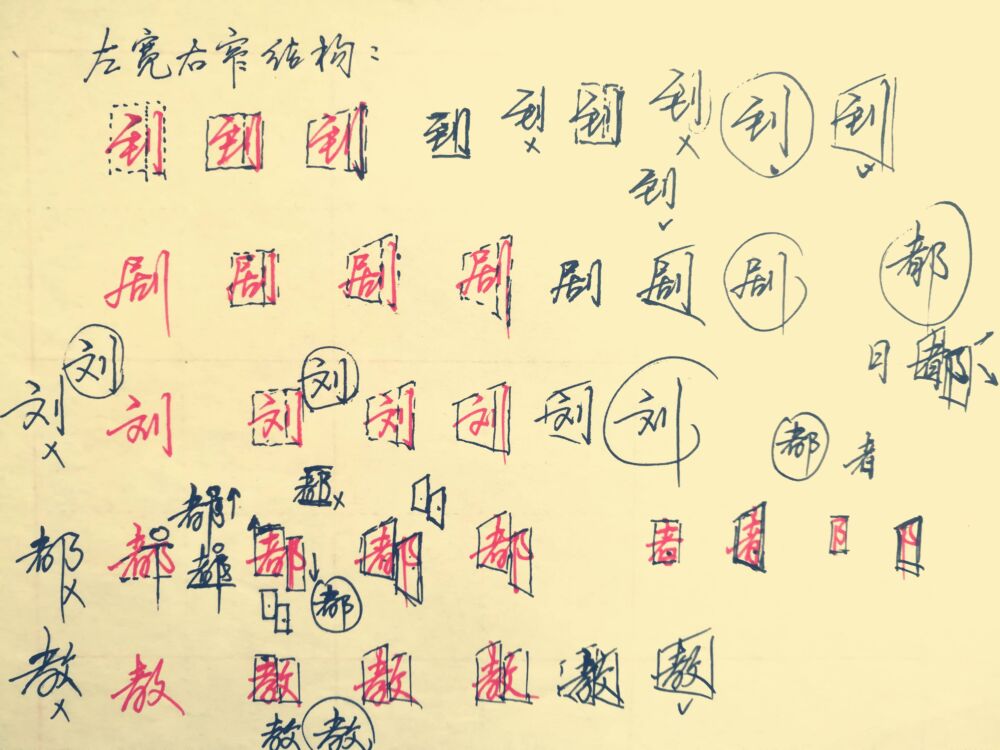 左宽右窄结构：
到 到 到 到 到 到 到 到 到
到
剧 剧 剧 剧 剧 剧 剧 都
刘 刘 日 都
刘 刘 刘 刘 刘 刘 刘 都 者
都 都
都 都 都 都 都 者 者 阝 阝
都 都
教 教 教 教 教 教 教
教 教